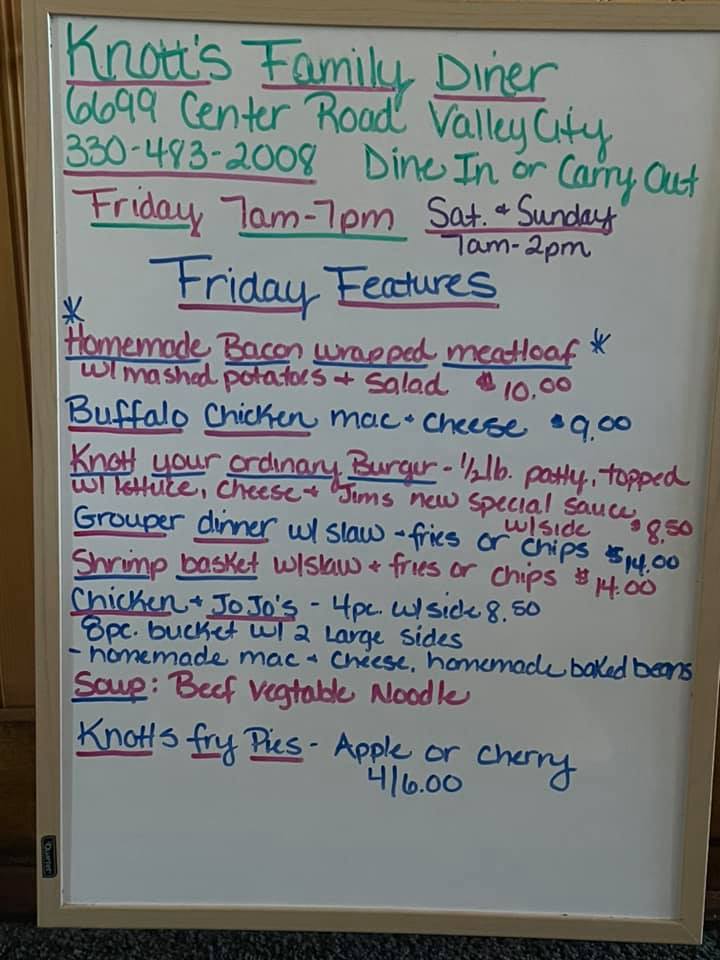 Knott's Family Diner
6699 Center Road Valley City
330-483-2008 Dine In or Carry Out
Friday 7am-7pm Sat. + Sunday
7am-2pm
Friday Features
* Homemade Bacon wrapped meatloaf *
w/ mashed potatoes + Salad $10.00
Buffalo Chicken mac + cheese $9.00
Knott your ordinary Burger - 1/2 lb. patty, topped
w/ lettuce, cheese + Jims new special sauce
w/side $8.50
Grouper dinner w/ slaw + fries or chips $14.00
Shrimp basket w/slaw + fries or chips $14.00
Chicken + JoJo's - 4pc. w/side 8.50
8pc. bucket w/ 2 Large sides
- homemade mac + cheese, homemade baked beans
Soup: Beef Vegtable Noodle
Knotts fry Pies - Apple or cherry
4/6.00
Quartet